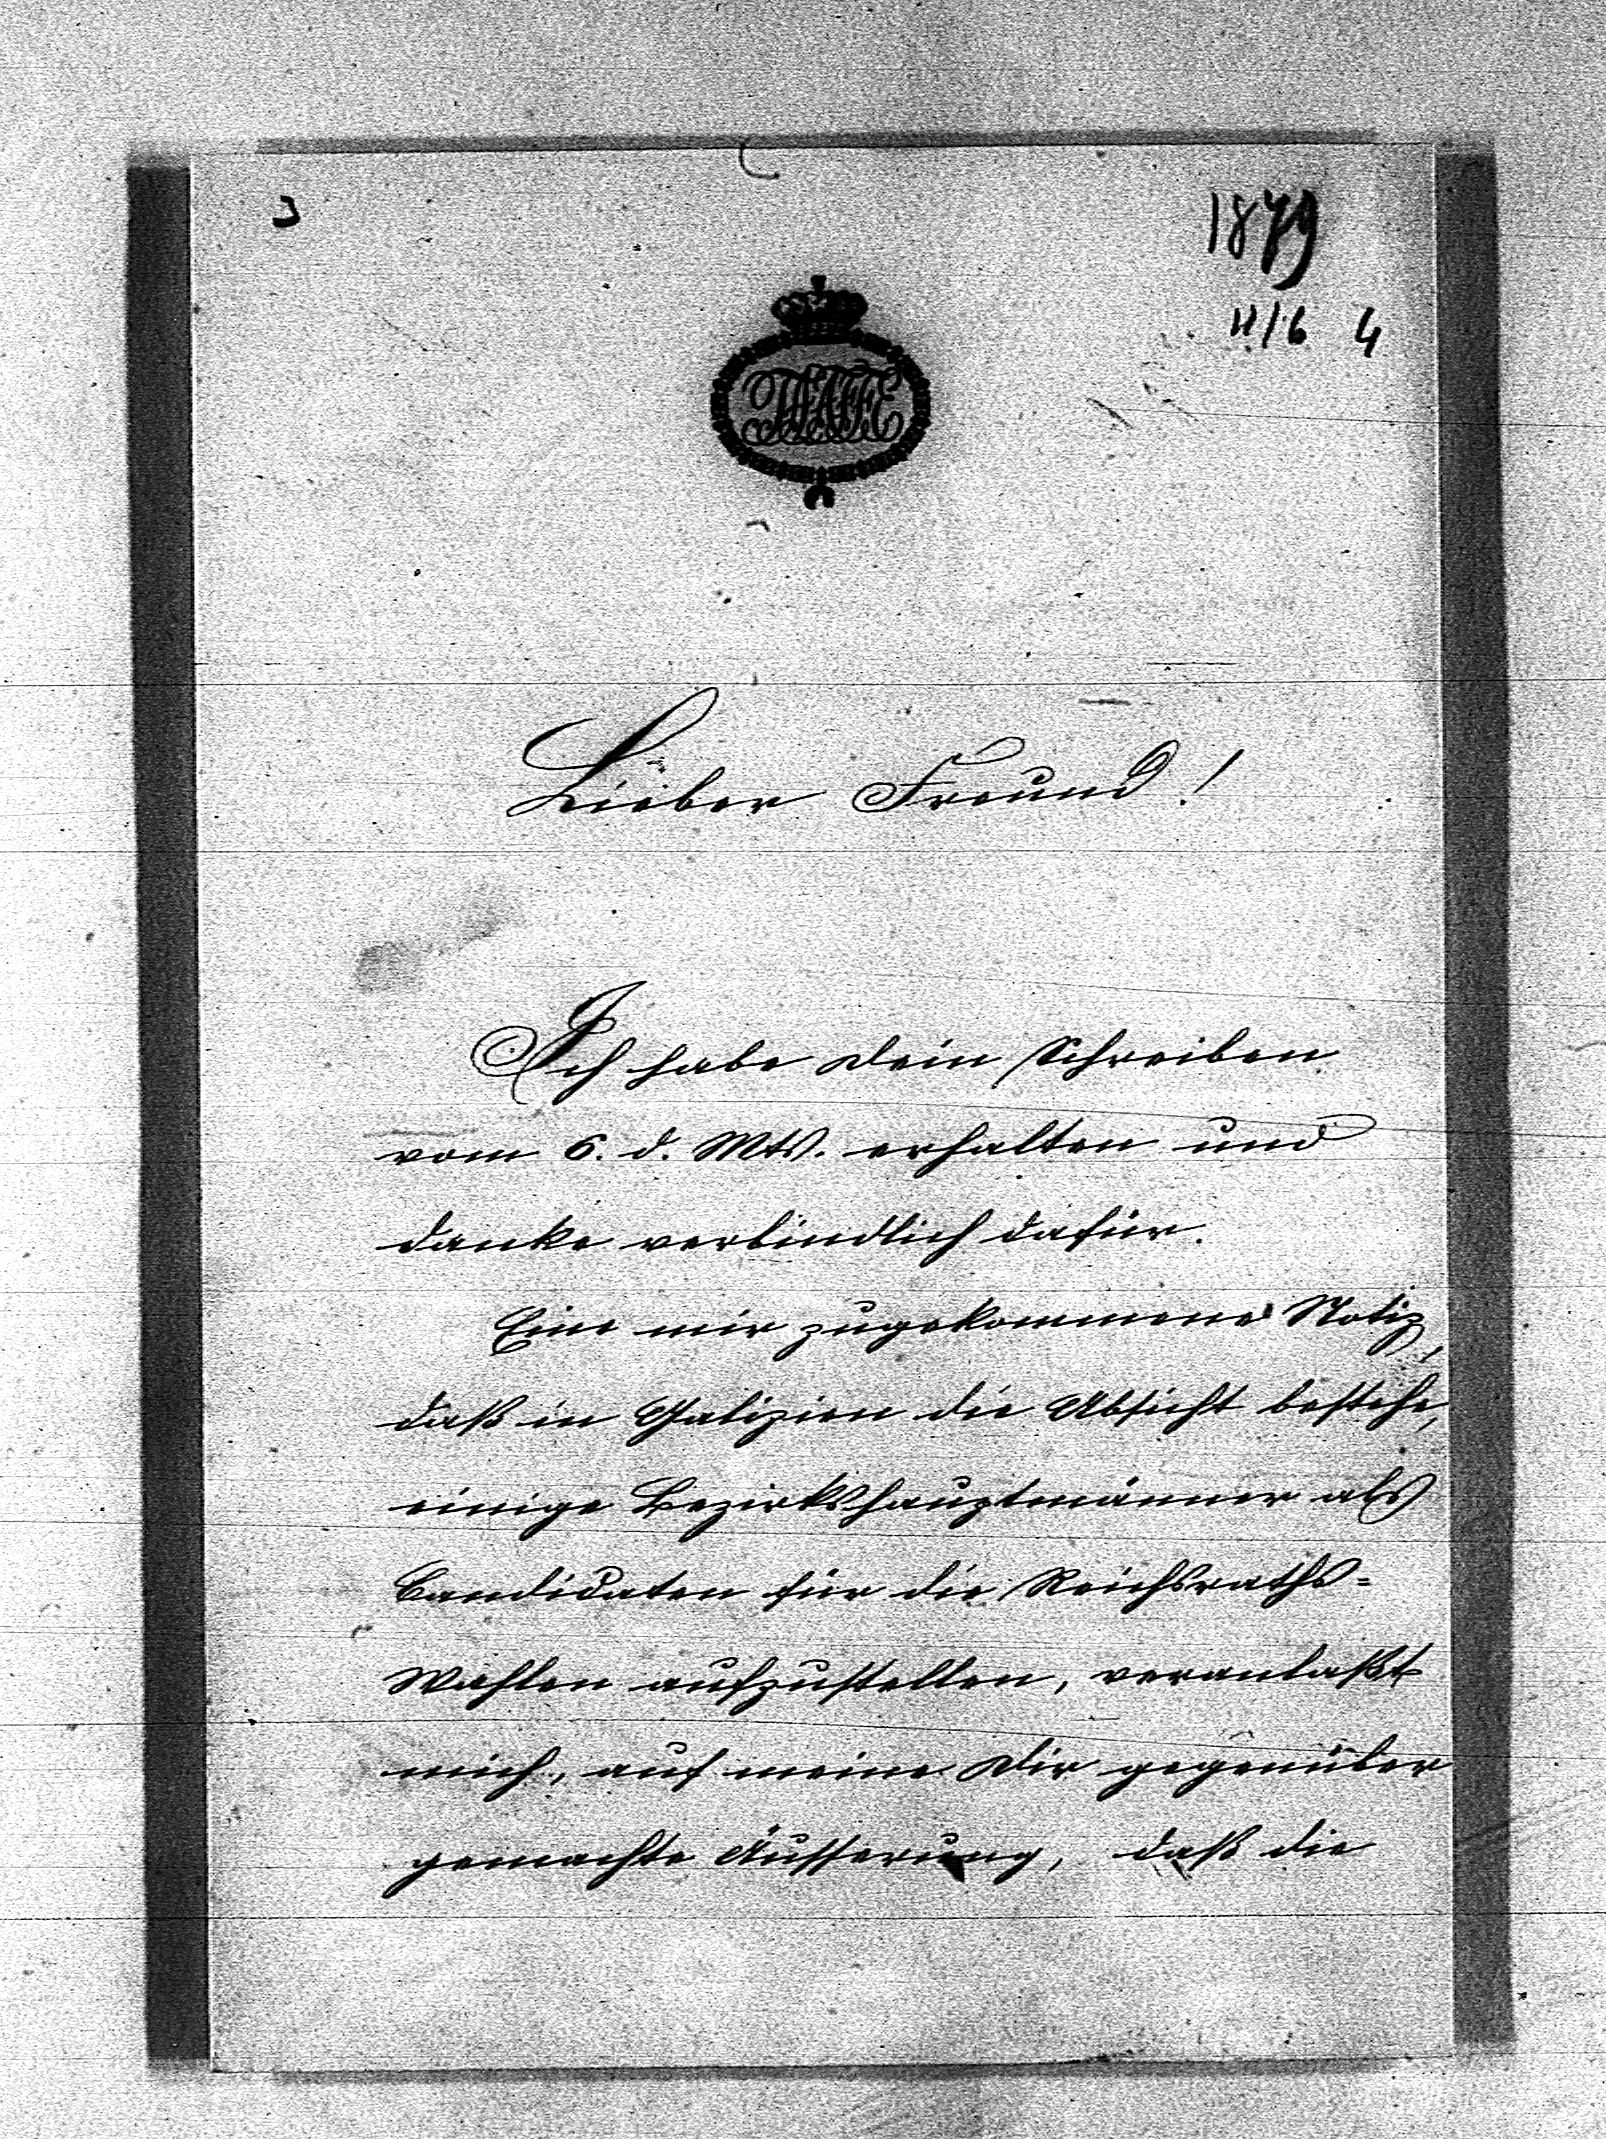 3
1879
11/6 4
TAAFFE
Lieber Freund!
Ich habe Dein Schreiben
vom 6. d. Mts. erhalten und
danke verbindlich dafür.
Eine mir zugekommene Notiz,
daß in Galizien die Absicht bestehe,
einige Bezirkshauptmänner als
Candidaten für die Reichsraths=
Wahlen aufzustellen, veranlaßt
mich, auf meine Dir gegenüber
gemachte Äusserung, daß die